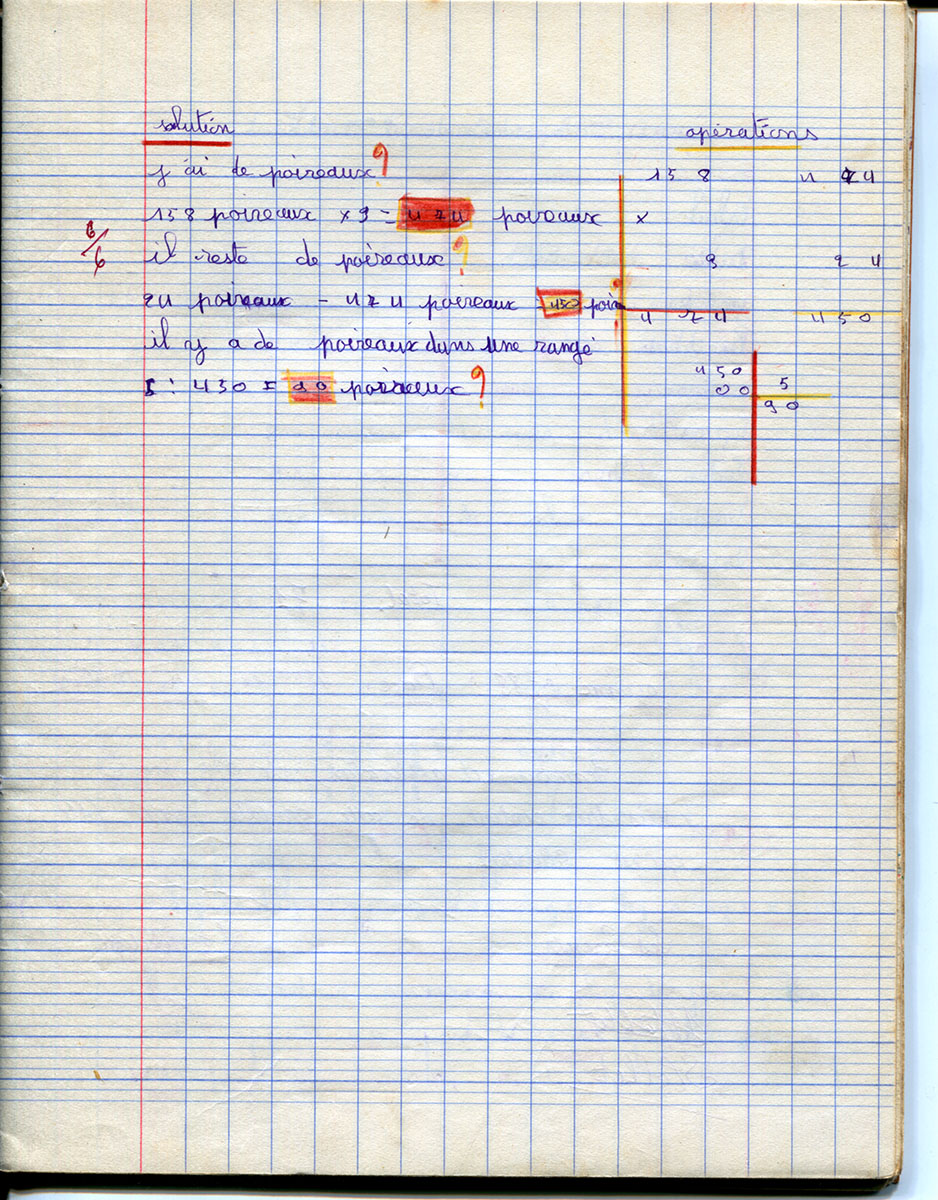 solution
j'ai de poireaux ?
158 poireaux × 3 = 474 poireaux
6/6
il reste de poireaux ?
24 poireaux - 474 poireaux = 450 poir
il y a de poireaux dans une rangé
5 : 450 = 90 poireaux ?
opérations
158
×
3
474
474
24
450
450
5
00
90